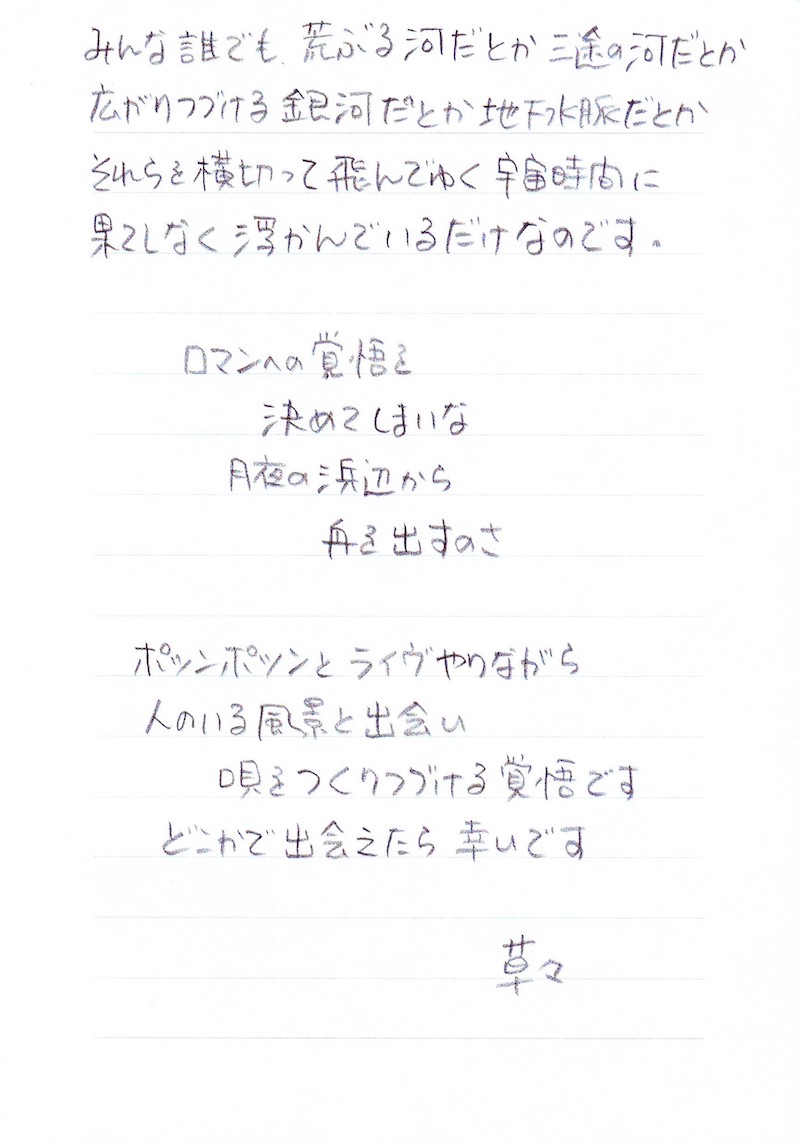 みんな誰でも、荒ぶる河だとか三途の河だとか
広がりつづける銀河だとか地下水脈だとか
それらを横切って飛んでゆく宇宙時間に
果てしなく浮かんでいるだけなのです。
ロマンへの覚悟を
決めてしまいな
月夜の浜辺から
舟を出すのさ
ポツンポツンとライヴやりながら
人のいる風景と出会い
唄をつくりつづける覚悟です
どこかで出会えたら幸いです
草々